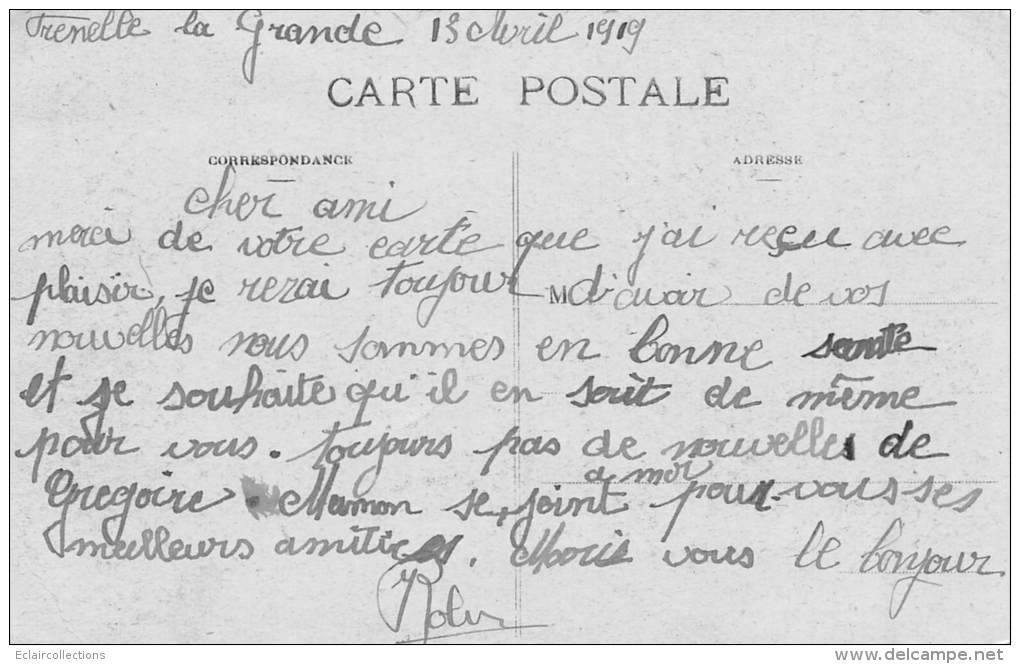 Trenelle la Grande 13 Avril 1919
CARTE POSTALE
CORRESPONDANCE
ADRESSE
Cher ami
merci de votre carte que j'ai reçu avec
plaisir, je rezai toujour M d'avoir de vos
nouvelles nous sommes en bonne santé
et je souhaite qu'il en soit de même
pour vous. toujours pas de nouvelles de
Gregoire. Maman se joint a moi pour vous ses
meilleurs amitiés. vous le bonjour
Eclaircollections
www.delcampe.net